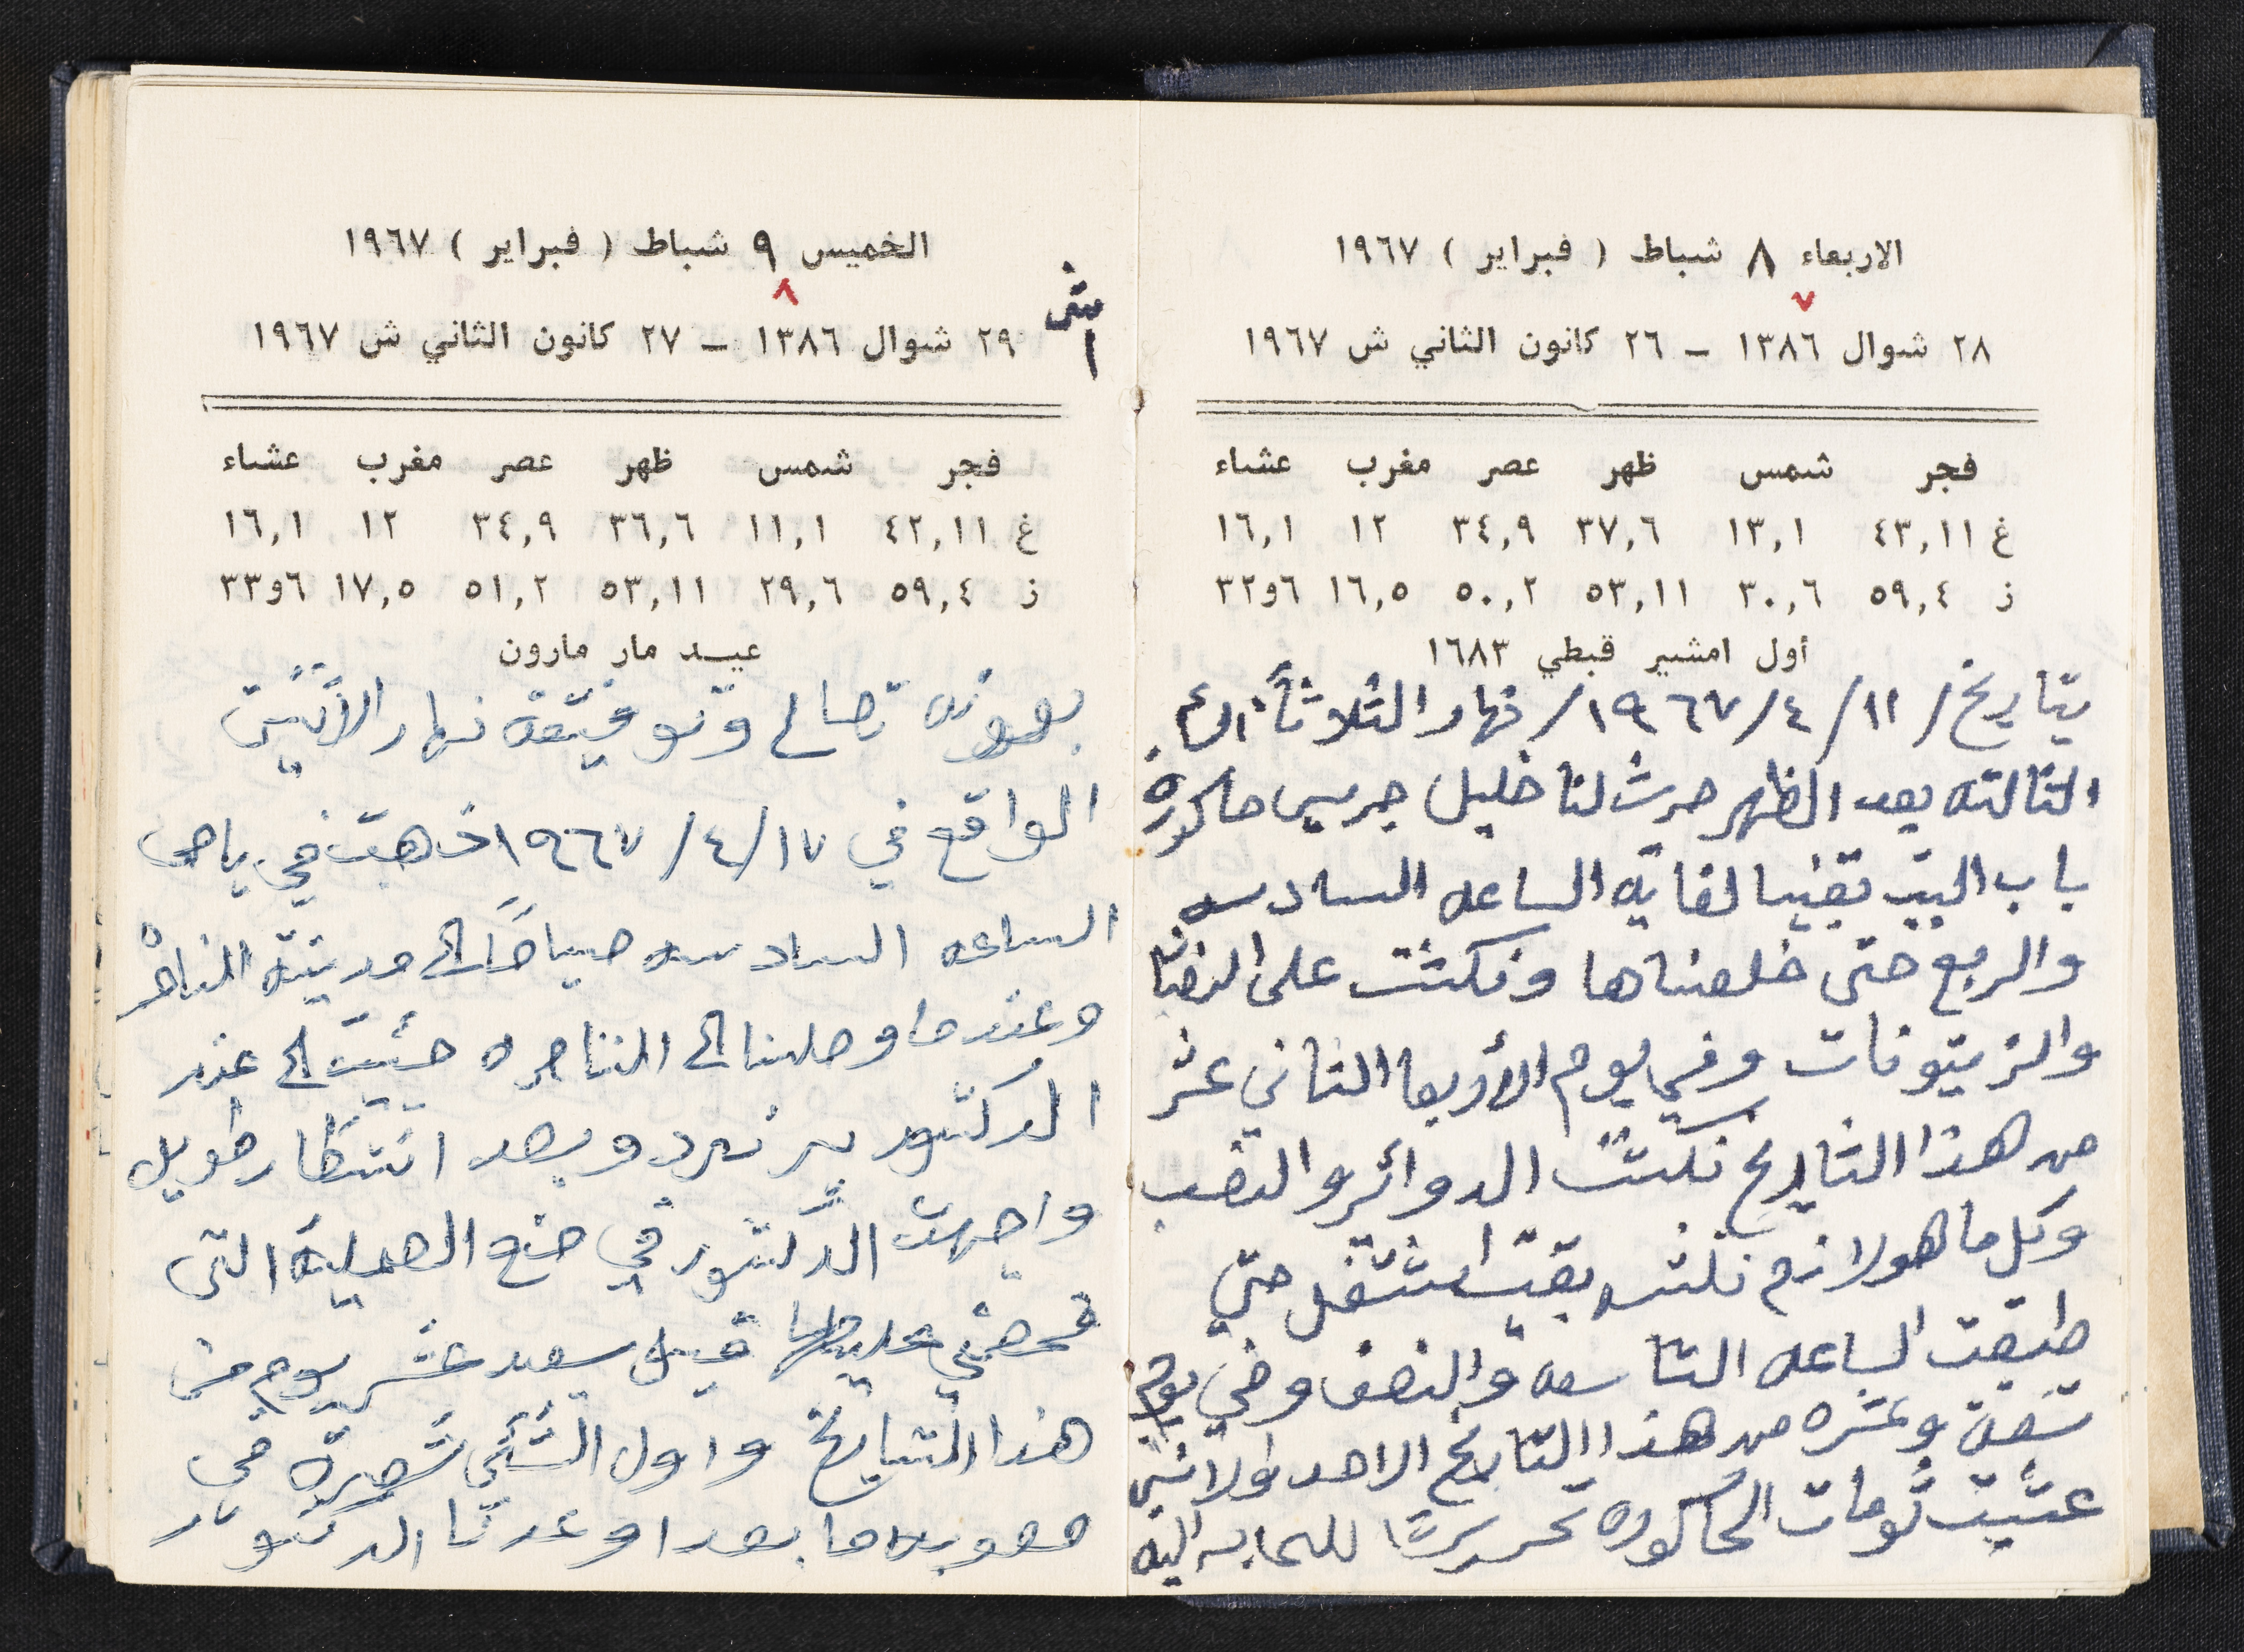 الاربعاء ٨ شباط ( فبراير ) ١٩٦٧
٧
٢٨ شوال ١٣٨٦ – ٢٦ كانون الثاني ش ١٩٦٧
فجر شمس ظهر عصر مغرب عشاء
غ ٤٣,١١ ١٣,١ ٣٧,٦ ٣٤,٩ ١٢ ١٦,١
ز ٥٩,٤ ٣٠,٦ ٥٣,١١ ٥٠,٢ ١٦,٥ ٦و٣٢
أول امشير قبطي ١٦٨٣
بتاريخ / ١١ / ٤ / ١٩٦٧ / نهار الثلاثاً
الثالثه بعد الظهر حرث لنا خليل جريس حاكورة
باب البيت بقينا لغاية الساعه السادسه
والربع حتى خلصناها ونكشت على النصبات
والزيتونات وفي يوم الأربعا الثاني عشر
من هذا التاريخ نكشت الدوائر والنصب
وكل ما هو لازم نكش بقيت اشتغل حتي
طبقت الساعه التاسعه والنصف وفي يوم
ستعة وعشره من هذا التاريخ الاحد ولاثنين
عشيت ثومات الحاكوره
الخميس ٩ شباط ( فبراير ) ١٩٦٧
٨
٢٩ شوال ١٣٨٦ – ٢٧ كانون الثاني ش ١٩٦٧
فجر شمس ظهر عصر مغرب عشاء
غ ٤٢,١١ ١١,١ ٣٦,٦ ٣٤,٩ ١٢ ١٦,١
ز ٥٩,٤ ٢٩,٦ ٥٣,١١ ٥١,٢ ١٧,٥ ٦و٣٣
عيد مار مارون
بعونه تعالى وتوفيقه نهار الأثنين
الواقع في ١٧/٤/١٩٦٧ ذهبت في باص
الساعه السادسه صباحاً الى مدينة الناصرة
وعندما وصلنا الى الناصره جئيت الى عند
الدكتور برنرد وبعد انتظار طويل
واجهت الدكتور في ضع العملية التى
فحصني عليها قبل سبعد عشر يوم من
هذا التاريخ واول الشئي شعرة في
صعوبه ما بعدا وعدنا الدكتور